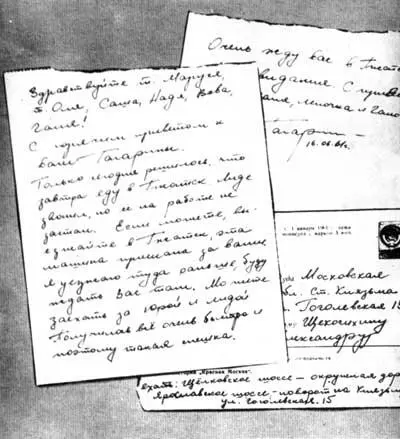 Здравствуйте т. Маруся,
т. Оля, Саша, Надя, Вова,
Галя!
С горячим приветом к
вам Гагарины.
Только сегодня решилось, что
завтра еду в Гжатск.
звонил, но её на работе не
застал. Если можете, вы-
езжайте в Гжатск, эта
машина прислана за вами
Я уезжаю туда раньше, буду
ждать Вас там. Можете
заехать за Юрой и Лидой
Получилось всё очень быстро и
поэтому такая спешка.
Очень жду вас в Гжатске
свидания. С приве
Гагарин
16.06.61г.
Московская
обл. Ст. Клязьма
Гоголевская 15
Щекочихину
Александру
"Красная Москва"
ехать: Щёлковское шоссе – окружная дор
Ярославское шоссе – поворот на Клязьм
ул. Гоголевская. 15